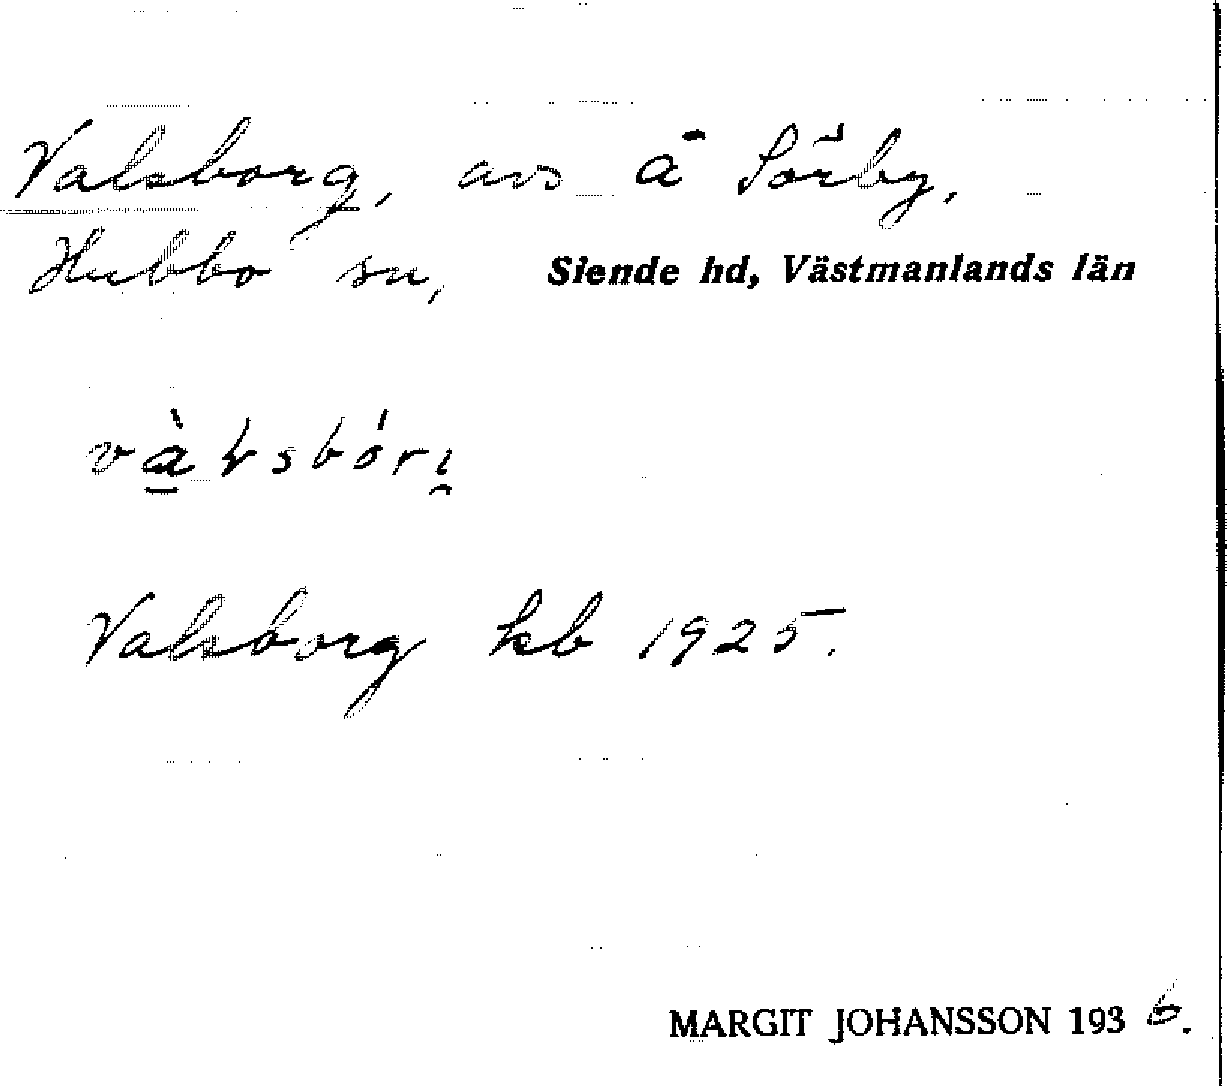 Valsborg, avs å Sörby,
Hubbo sn, Siende hd, Västmanlands län
Valsborg kb 1925.
MARGIT JOHANSSON 1936.